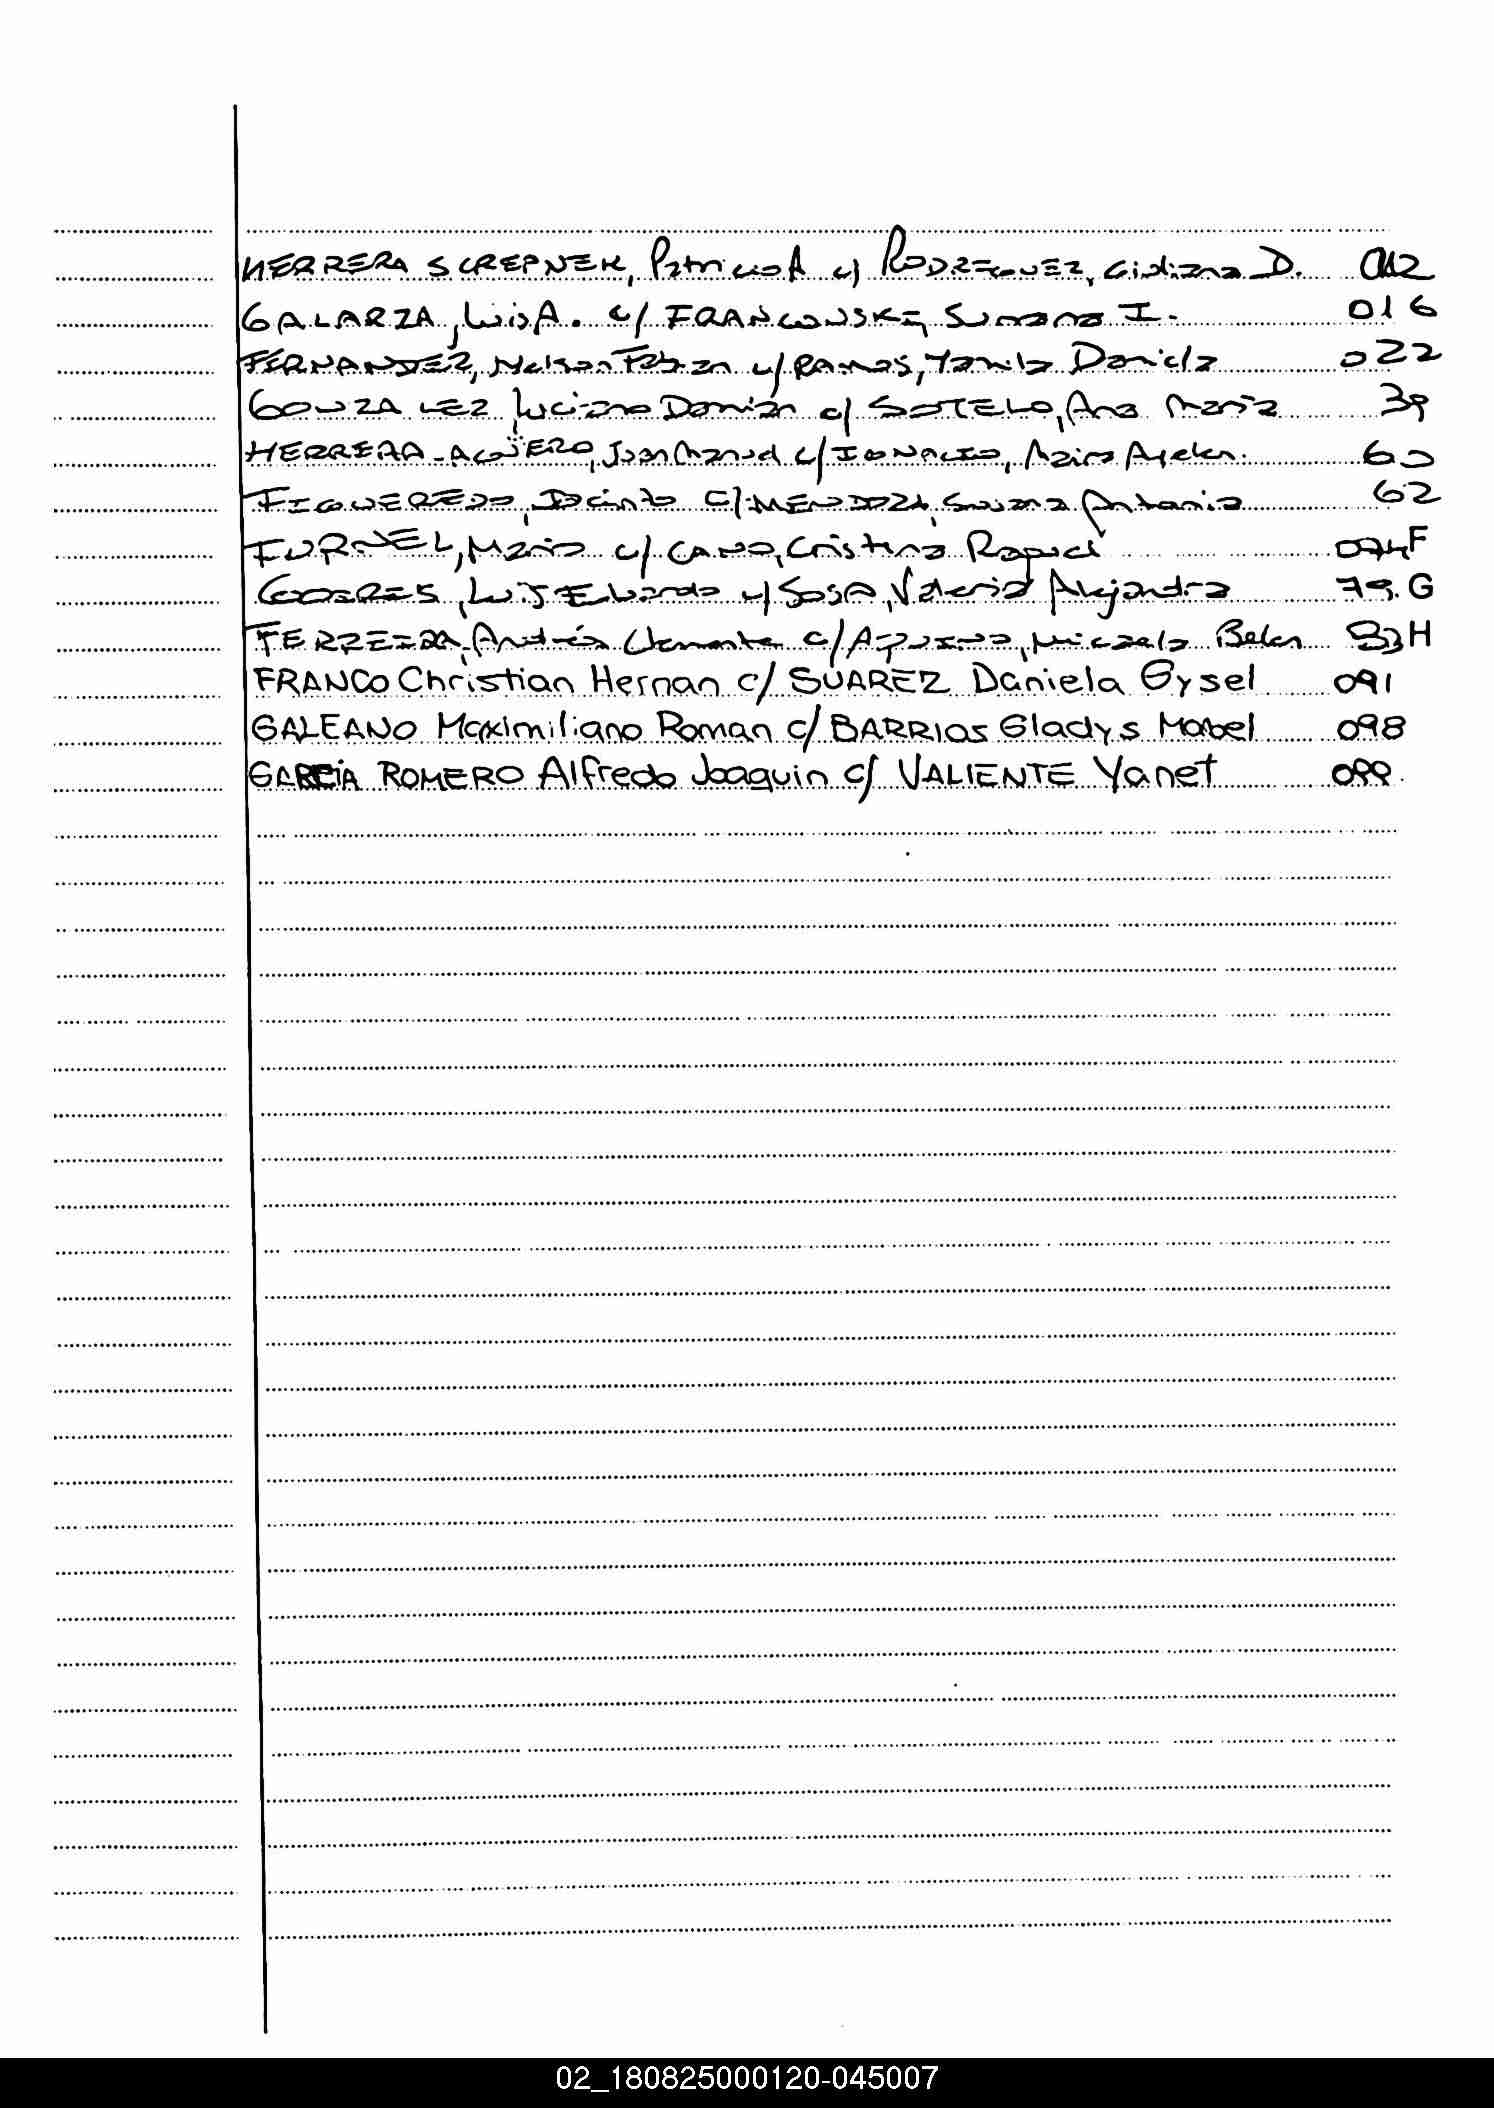 HERRERA SCREPNEK, Patricio A c/ RODRIGUEZ, Liliana D. 012
GALARZA, Luis A. c/ FRANCOUSKI, Susana I. 016
FERNANDEZ, Nelson Fabian c/ RAMOS, Yamila Daniela 022
GONZALEZ Luciano Damián c/ SOTELO, Ana María 39
HERRERA-AGÜERO, Juan Manuel c/ IGNACIO, Maira Ayelen. 60
FIGUEREDO, Jacinto c/ MENDOZA, Antonia 62
FORNEL, Mario c/ CANO, Cristina Raquel 074F
Luis Eduardo c/ SOSA, Valeria Alejandra 79.G
FERREIRA, Andrés Clemente c/ AQUINO, Micaela Belen H
FRANCO Christian Hernan c/ SUAREZ Daniela Gysel 091
GALEANO Maximiliano Roman c/ BARRIOS Gladys Mabel 098
GARCÍA ROMERO Alfredo Joaquin c/ VALIENTE Yanet 099
02_180825000120-045007